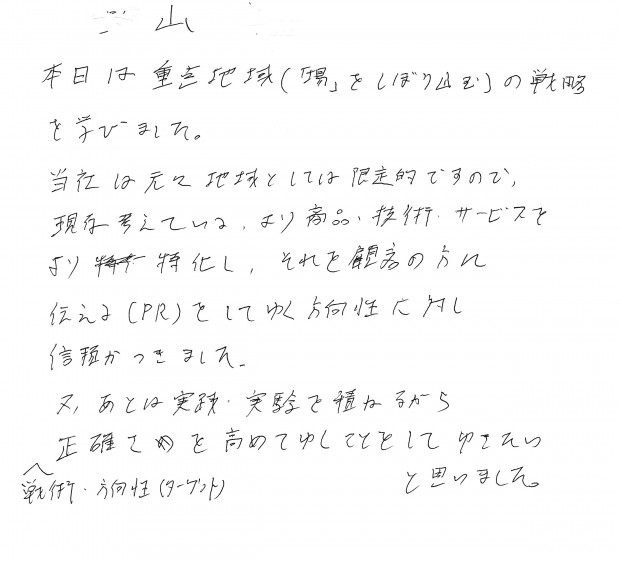 山
本日は重点地域(「場」をしぼり込む)の戦略
を学びました。
当社は元々地域としては限定的ですので、
現在考えている、より商品・技術・サービスを
より 特化し、それを顧客の方に
伝える(PR)をしてゆく方向性に対し
信頼がつきました。
又、あとは実践・実験を積ねるから
正確さめを高めてゆしことをして ゆきたい
と思いました。
戦術・方向性(ターゲット)